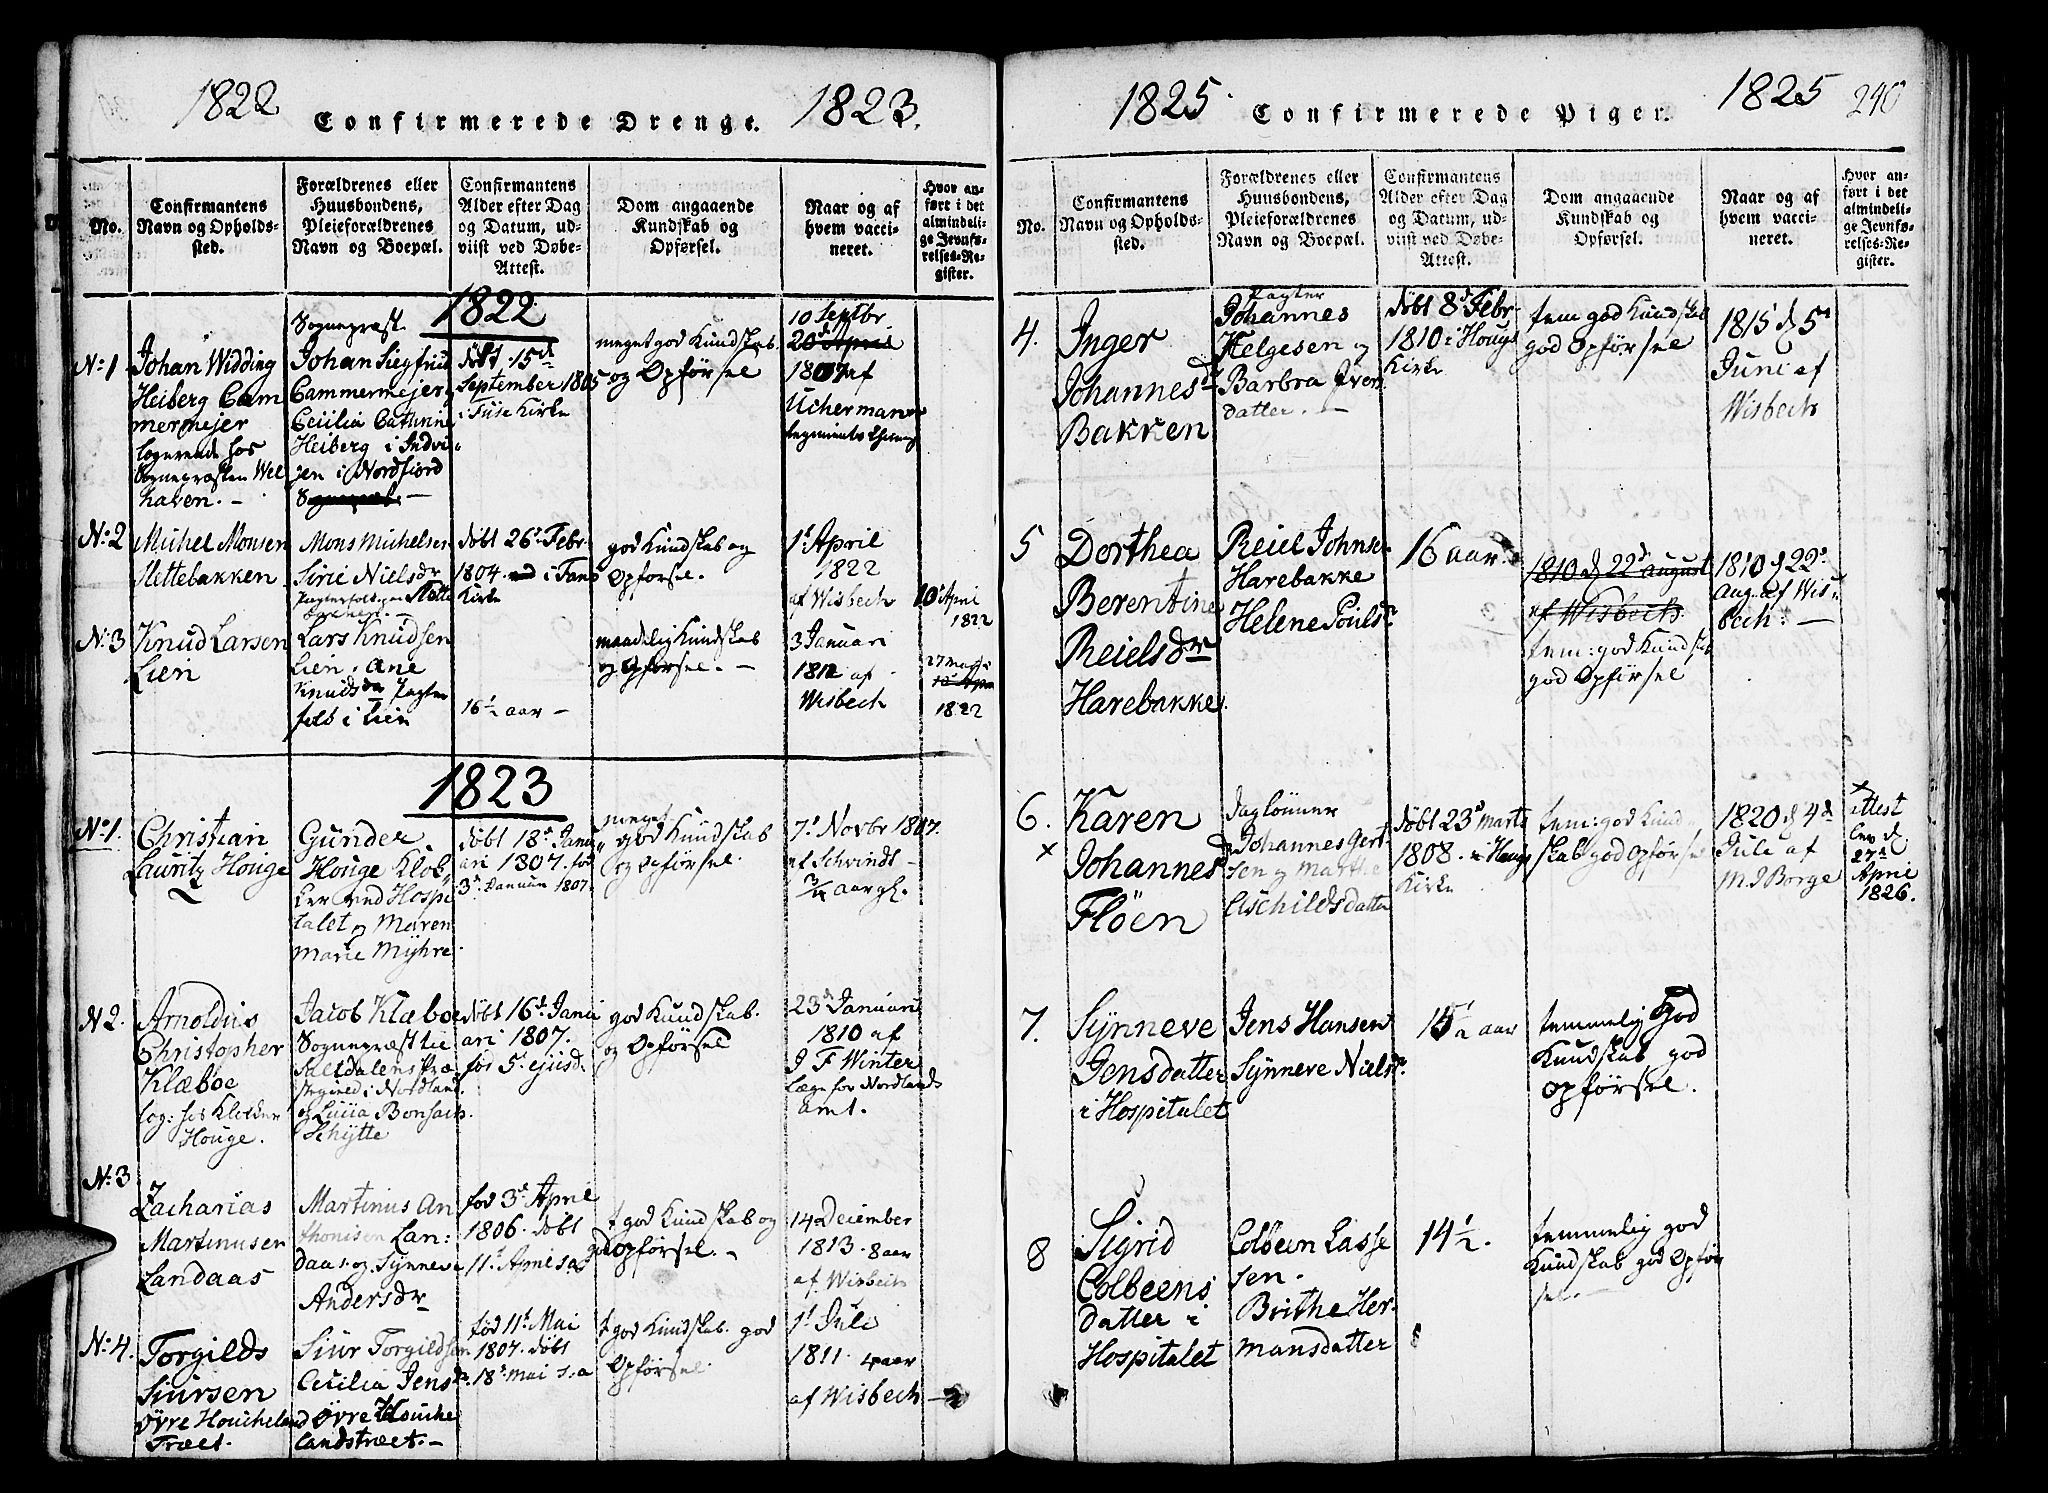 1822
Confirmerede Drenge.
1823.
No.
Confirmantens
Navn og Opholds-
sted.
Forældrenes eller
Huusbondens,
Pleieforældrenes
Navn og Boepæl.
Confirmantens
Alder efter Dag
og Datum, ud-
viist ved Døbe-
Attest.
Dom angaaende
Kundskab og
Opførsel.
Naar og af
hvem vacci-
neret.
Hvor an-
ført i det
almindeli-
ge Jevnfø-
relses-Re-
gister.
1822.
No 1
Johan Widding
Heiberg Cam
mermejer
logerende hos
Sognepræsten Wel
haven. -
Sognepræst
Johan Siegfried
Cammermejer
Cecilia Cathrine
Heiberg i Indvi
gen i Nordfiord
døbt 15de
September 1805
i Fuse Kirke
meget god Kundskab.
og Opførsel
10 Septbr
20d April
1807 af
Ucherman
No 2
Michel Monsen
Slettebakken
Mons Michelsen
Sirie Nielsdr
døbt 26d Febr
1804. i Fane
Kirke
god Kundskab og
Opførsel.
1d April
1822
af Wisbech
10d April
1822
No 3
Knud Larsen
Lien
Lars Knudsen
Lien, Ane
Knudsdr Pagter
folk i Lien
16½ aar -
maadelig Kundskab
og Opførsel. -
3 Januari
1812 af
Wisbech
27 Marts
1822
1823
No 1.
Christian
Lauritz Houge
Gunder
Houge Klok
ker ved Hospi
talet og Maren
Marie Myhre
døbt 18d Janu
ari 1807. fød
3d Januari 1807.
meget
god Kundskab
og Opførsel.
7d Novbr 1807.
af Schvindt -
¾ aar gl.
N 2.
Arnoldus
Christopher
Klæboe
log: hos Klokker
Houge.
Jacob Klæboe
Sognepræst til
Saltdalens Præ
stegield i Nordland
og Lucia Bonsach
Schytte
døbt 16d Janu
ari 1807.
fød 5d ejusd.
god Kundskab.
og Opførsel
23d Januari
1810 af
J F Winter
Læge for Nordlands
Amt.
No 3
Zacharias
Martinusen
Landaas
Martinus An
thonisen Lan:
daas og Synneve
Andersdr
fød 3d April
1806. døbt
11d April s.a
t god Kundskab og
god Opførsel. -
14 December
1813. 8 aar
af Wisbech
No 4.
Torgilds
Siursen
Øvre Houcheland
Træet.
Siur Torgildsen
Cecilia Jensdr
Øvre Houche
landstræet. -
fød 11d Mai
1807. døbt
18d mai s.a
t god Kundskab. god
Opførsel.
1d Juli
1811. 4 aar
af Wisbech
1825.
Confirmerede Piger.
1825
240
No.
Confirmantens
Navn og Opholds-
sted.
Forældrenes eller
Huusbondens,
Pleieforældrenes
Navn og Boepæl.
Confirmantens
Alder efter Dag
og Datum, ud-
viist ved Døbe-
Attest.
Dom angaaende
Kundskab og
Opførsel.
Naar og af
hvem vacci-
neret.
Hvor an-
ført i det
almindeli-
ge Jevnfø-
relses-Re-
gister.
4.
Inger
Johannesd
Bakken
Pagter
Johannes
Helgesen og
Barbra Iver
datter. -
døbt 8d Febr
1810 i Hougs
Kirke
tem god Kundskab
god Opførsel
1815 d 5d
Juni af
Wisbech
5
Dorthea
Berentine
Reielsdr
Harebakke
Reiel Johnsen
Harebakke
Helene Poulsdr
16 aar
1810 d 22d august
af Wisbech
tem: god Kundskab
god Opførsel
1810 d 22d
Aug. af Wis
bech. -
6.
×
Karen
Johannesd
Fløen
daglønner
Johannes Gert
sen og Marthe
Aschildsdatter
døbt 23d Marts
1808. i Hougs
Kirke
tem: god Kund
skab god Opførsel
1820 d 4d
Juli af
M. J Borge
×
attest
lev d
27d
April
1826.
7.
Synneve
Jensdatter
i Hospitalet
Jens Hansen
Synneve Nielsdr.
15½ aar
temmelig God
Kundskab god
opførsel.
8
Sigrid
Colbeens
datter i
Hospitalet
Colbeen Lasse
sen.
Brithe Her-
mansdatter
14½.
temmelig god
Kundskab god Opfør
sel. -